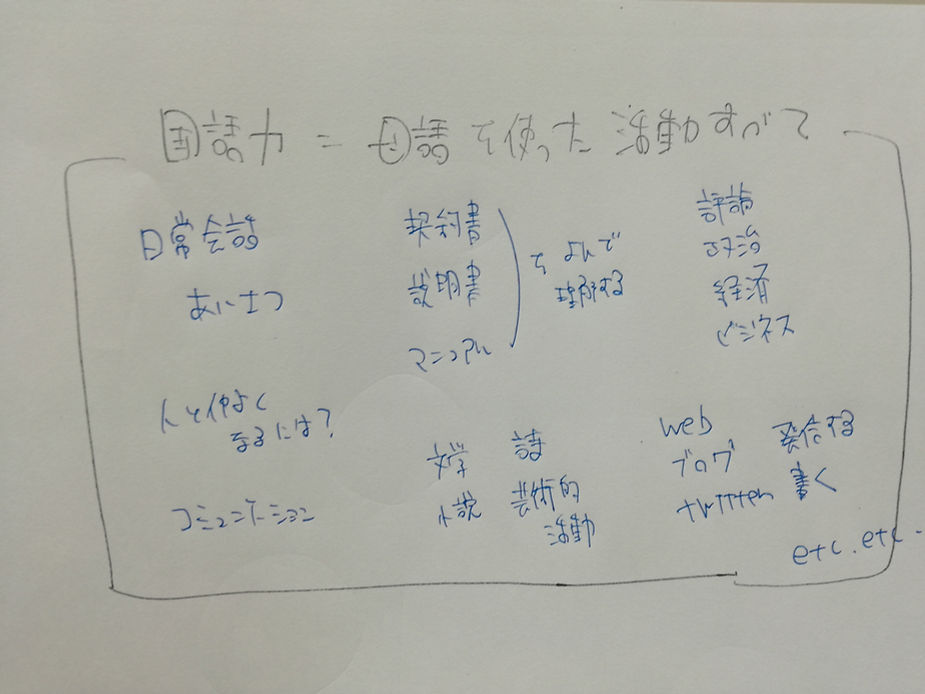 国語力 = 母語を使った活動すべて
日常会話
あいさつ
契約書
説明書
マニュアル
をよんで
理解する
評論
政治
経済
ビジネス
人と仲よく
なるには?
コミュニケーション
文学
小説
詩
芸術的
活動
web
ブログ
twitter
発信する
書く
etc. etc.